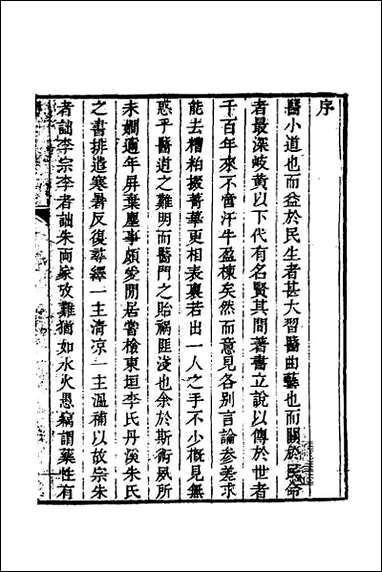 序
醫小道也而益於民生者甚大習醫曲藝也而關於民命
者最深岐黃以下代有名賢其間著書立說以傳於世者
千百年來不啻汗牛盈棟矣然而意見各別言論參差求
能去糟粕掇菁華更相表裏若出一人之手不少概見無
惑乎醫道之難明而醫門之貽禍匪淺也余於斯術夙所
未嫺邇年屏棄塵事頗愛閒居嘗檢東垣李氏丹溪朱氏
之書排遣寒暑反復尋繹一主清凉一主溫補以故宗朱
者詘李宗李者詘朱兩家攻難猶如水火愚竊謂藥性有